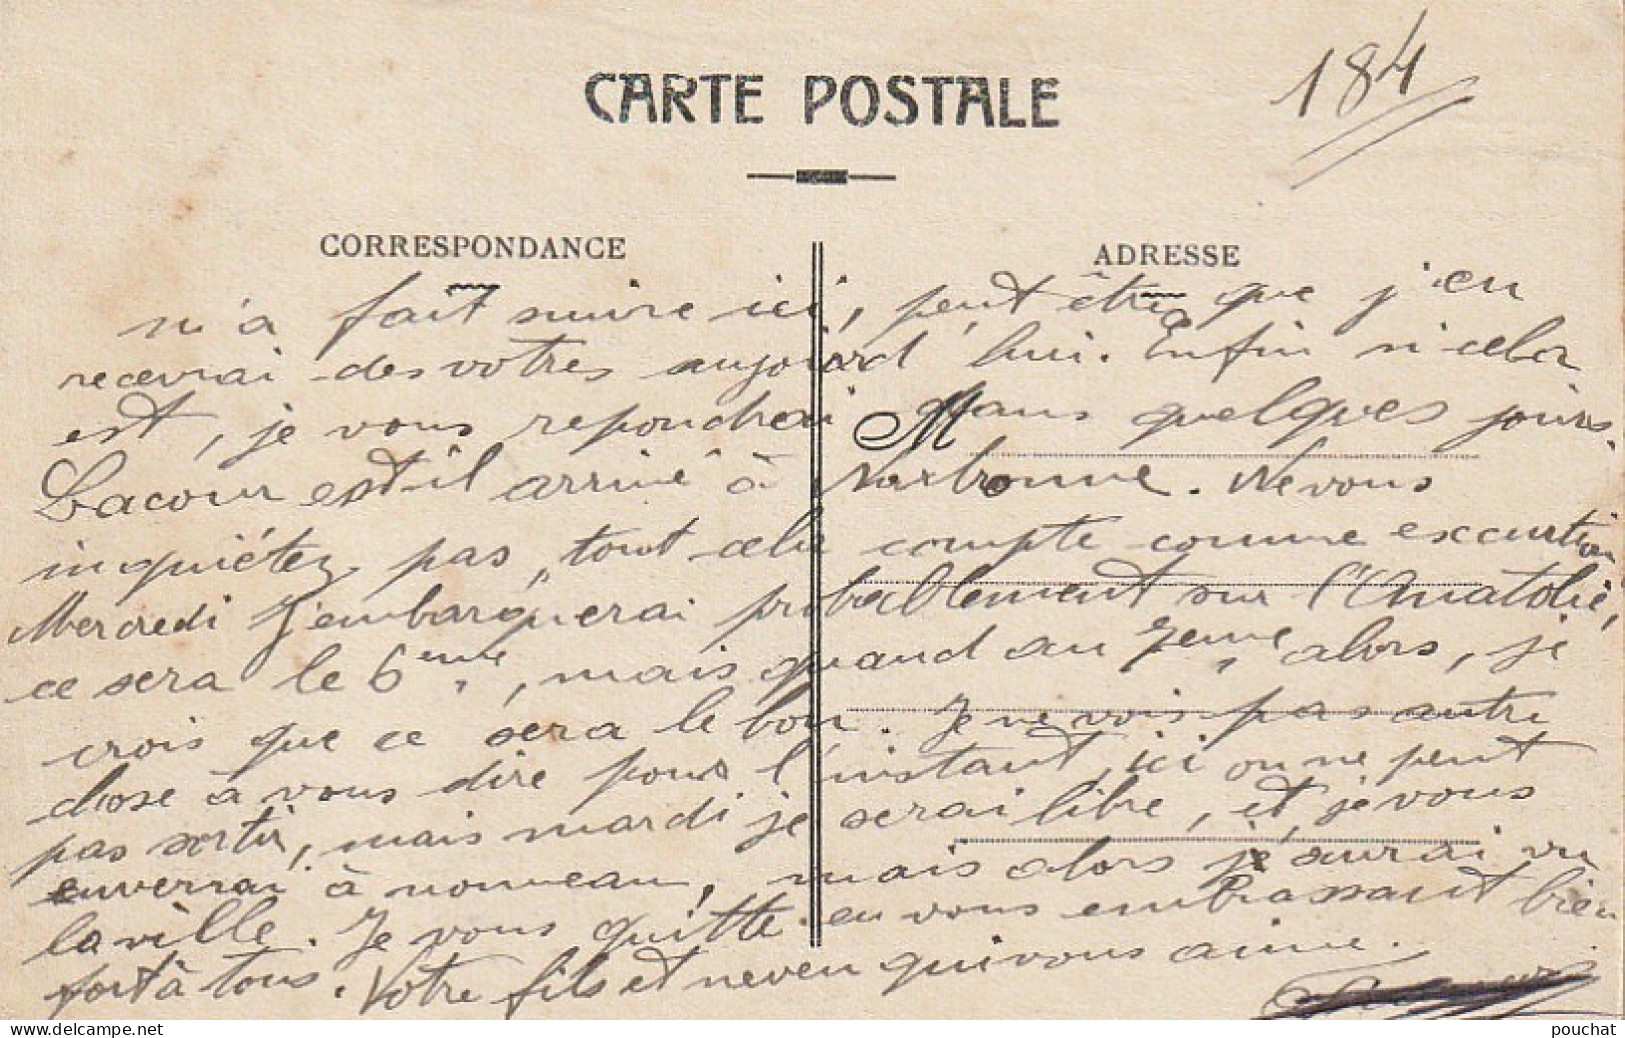 184
CARTE POSTALE
CORRESPONDANCE
ADRESSE
m'a fait suivre ici, peut être que j'en
recevrai des votres aujourd'hui. Enfin si cela
est, je vous repondrai dans quelques jours.
M
Lacour est-il arrivé à Narbonne. Ne vous
inquiétez pas, tout cela compte comme excursion
Mercredi j'embarquerai probablement sur l'Anatolie,
ce sera le 6eme, mais quand au 7eme, alors, je
crois que ce sera le bon. Je ne vois pas autre
chose à vous dire pour l'instant, ici on ne peut
pas sortir, mais mardi je serai libre, et, je vous
enverrai à nouveau, mais alors j'aurai vu
la ville. Je vous quitte en vous embrassant bien
fort à tous. Votre fils et neveu qui vous aime.
delcampe.net
pouchat